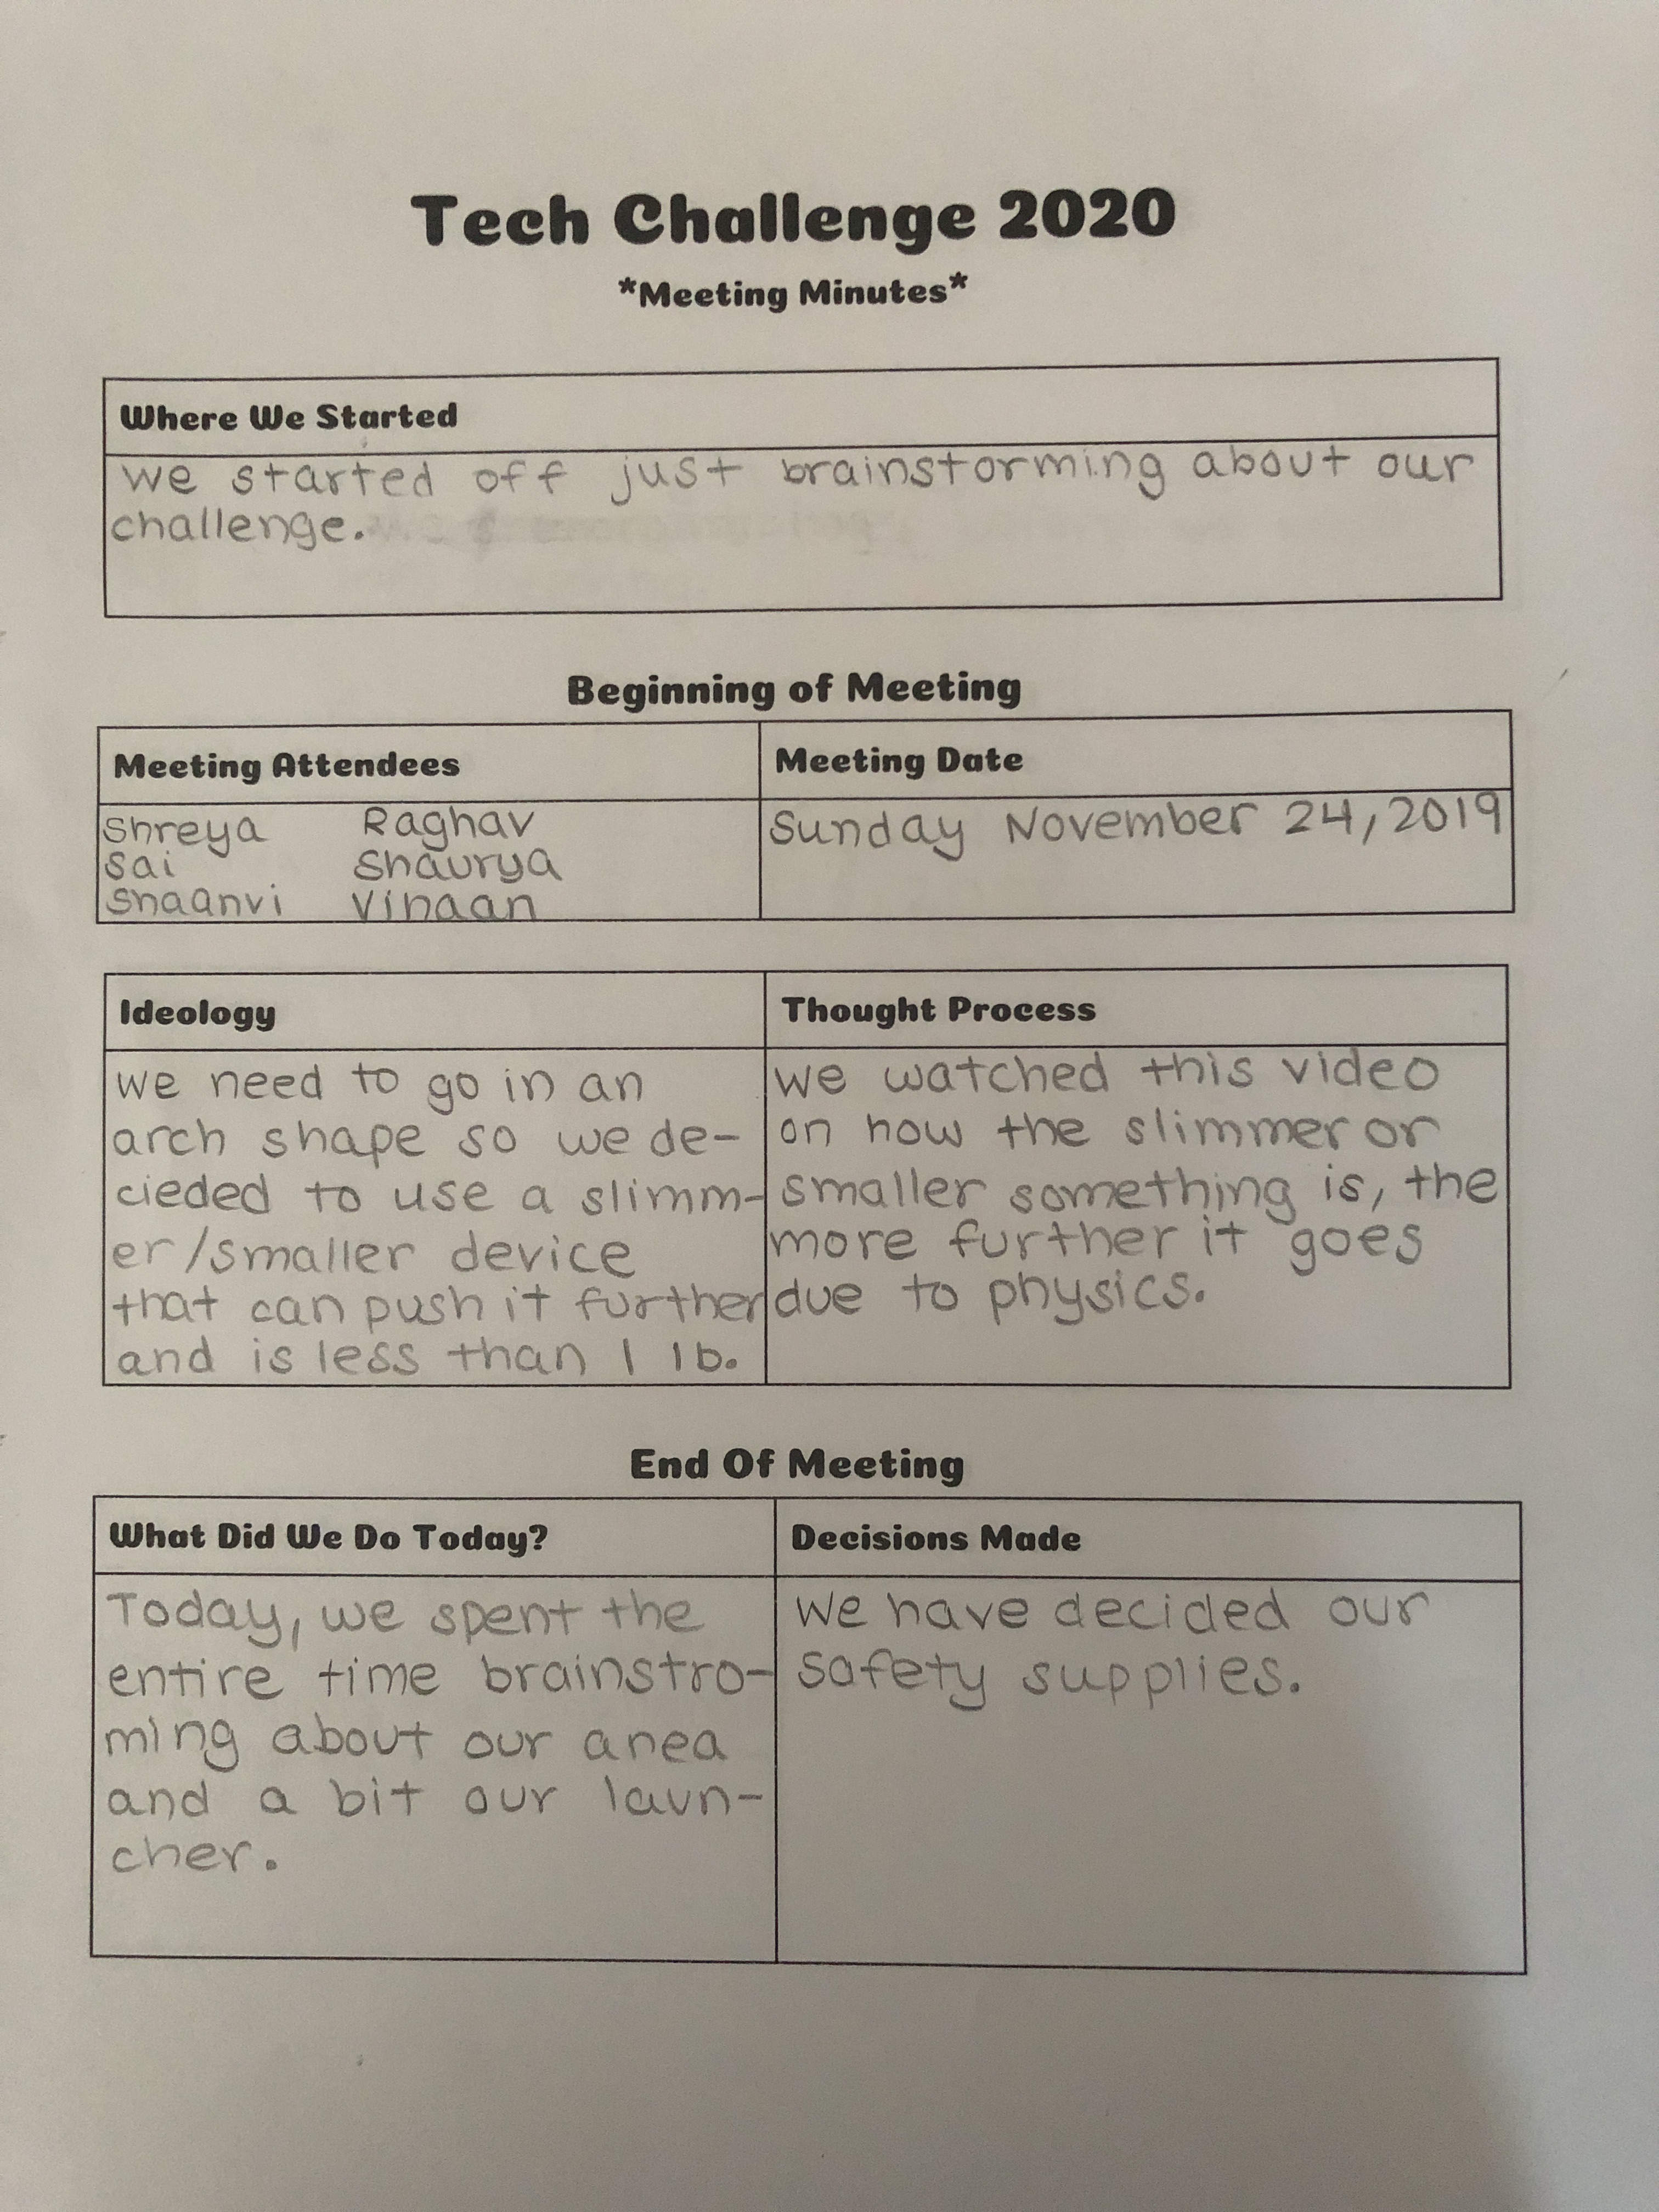 Tech Challenge 2020
*Meeting Minutes*
Where We Started
we started off just brainstorming about our
challenge.
Beginning of Meeting
Meeting Attendees
Meeting Date
Shreya Raghav
Sai Shaurya
Shaanvi Vihaan
Sunday November 24, 2019
Ideology
we need to go in an
arch shape so we de-
cieded to use a slimm-
er/smaller device
that can push it further
and is less than 1 lb.
Thought Process
we watched this video
on how the slimmer or
smaller something is, the
more further it goes
due to physics.
End Of Meeting
What Did We Do Today?
Today, we spent the
entire time brainstro-
ming about our area
and a bit our laun-
cher.
Decisions Made
We have decided our
safety supplies.